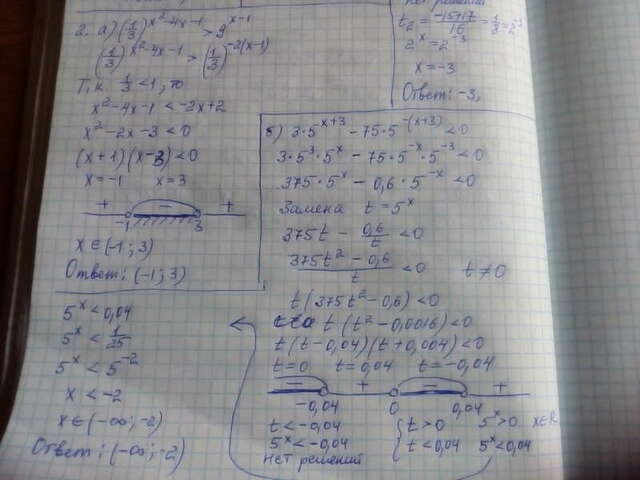 2. а) (1/3)^(x²-4x-1) > 9^(x-1)
(1/3)^(x²-4x-1) > (1/3)^(-2(x-1))
Т.к. 1/3 < 1, то
x² - 4x - 1 < -2x + 2
x² - 2x - 3 < 0
(x+1)(x-3) < 0
x = -1 x = 3
+ - +
-1 3
x ∈ (-1; 3)
Ответ: (-1; 3)
нет решений
t₂ = (-15+17)/16 = 1/8 = 2^(-3)
2^x = 2^(-3)
x = -3
Ответ: -3,
б) 3·5^(x+3) - 75·5^(-(x+3)) < 0
3·5³·5^x - 75·5^(-x)·5^(-3) < 0
375·5^x - 0,6·5^(-x) < 0
Замена t = 5^x
375t - 0,6/t < 0
(375t² - 0,6)/t < 0 t ≠ 0
t(375t² - 0,6) < 0
t(t² - 0,0016) < 0
t(t - 0,04)(t + 0,004) < 0
t = 0 t = 0,04 t = -0,04
- + - +
-0,04 0 0,04
t < -0,04 { t > 0 5^x > 0 x ∈ R
5^x < -0,04 t < 0,04 5^x < 0,04
Нет решений
5^x < 0,04
5^x < 1/25
5^x < 5^(-2)
x < -2
x ∈ (-∞; -2)
Ответ: (-∞; -2)